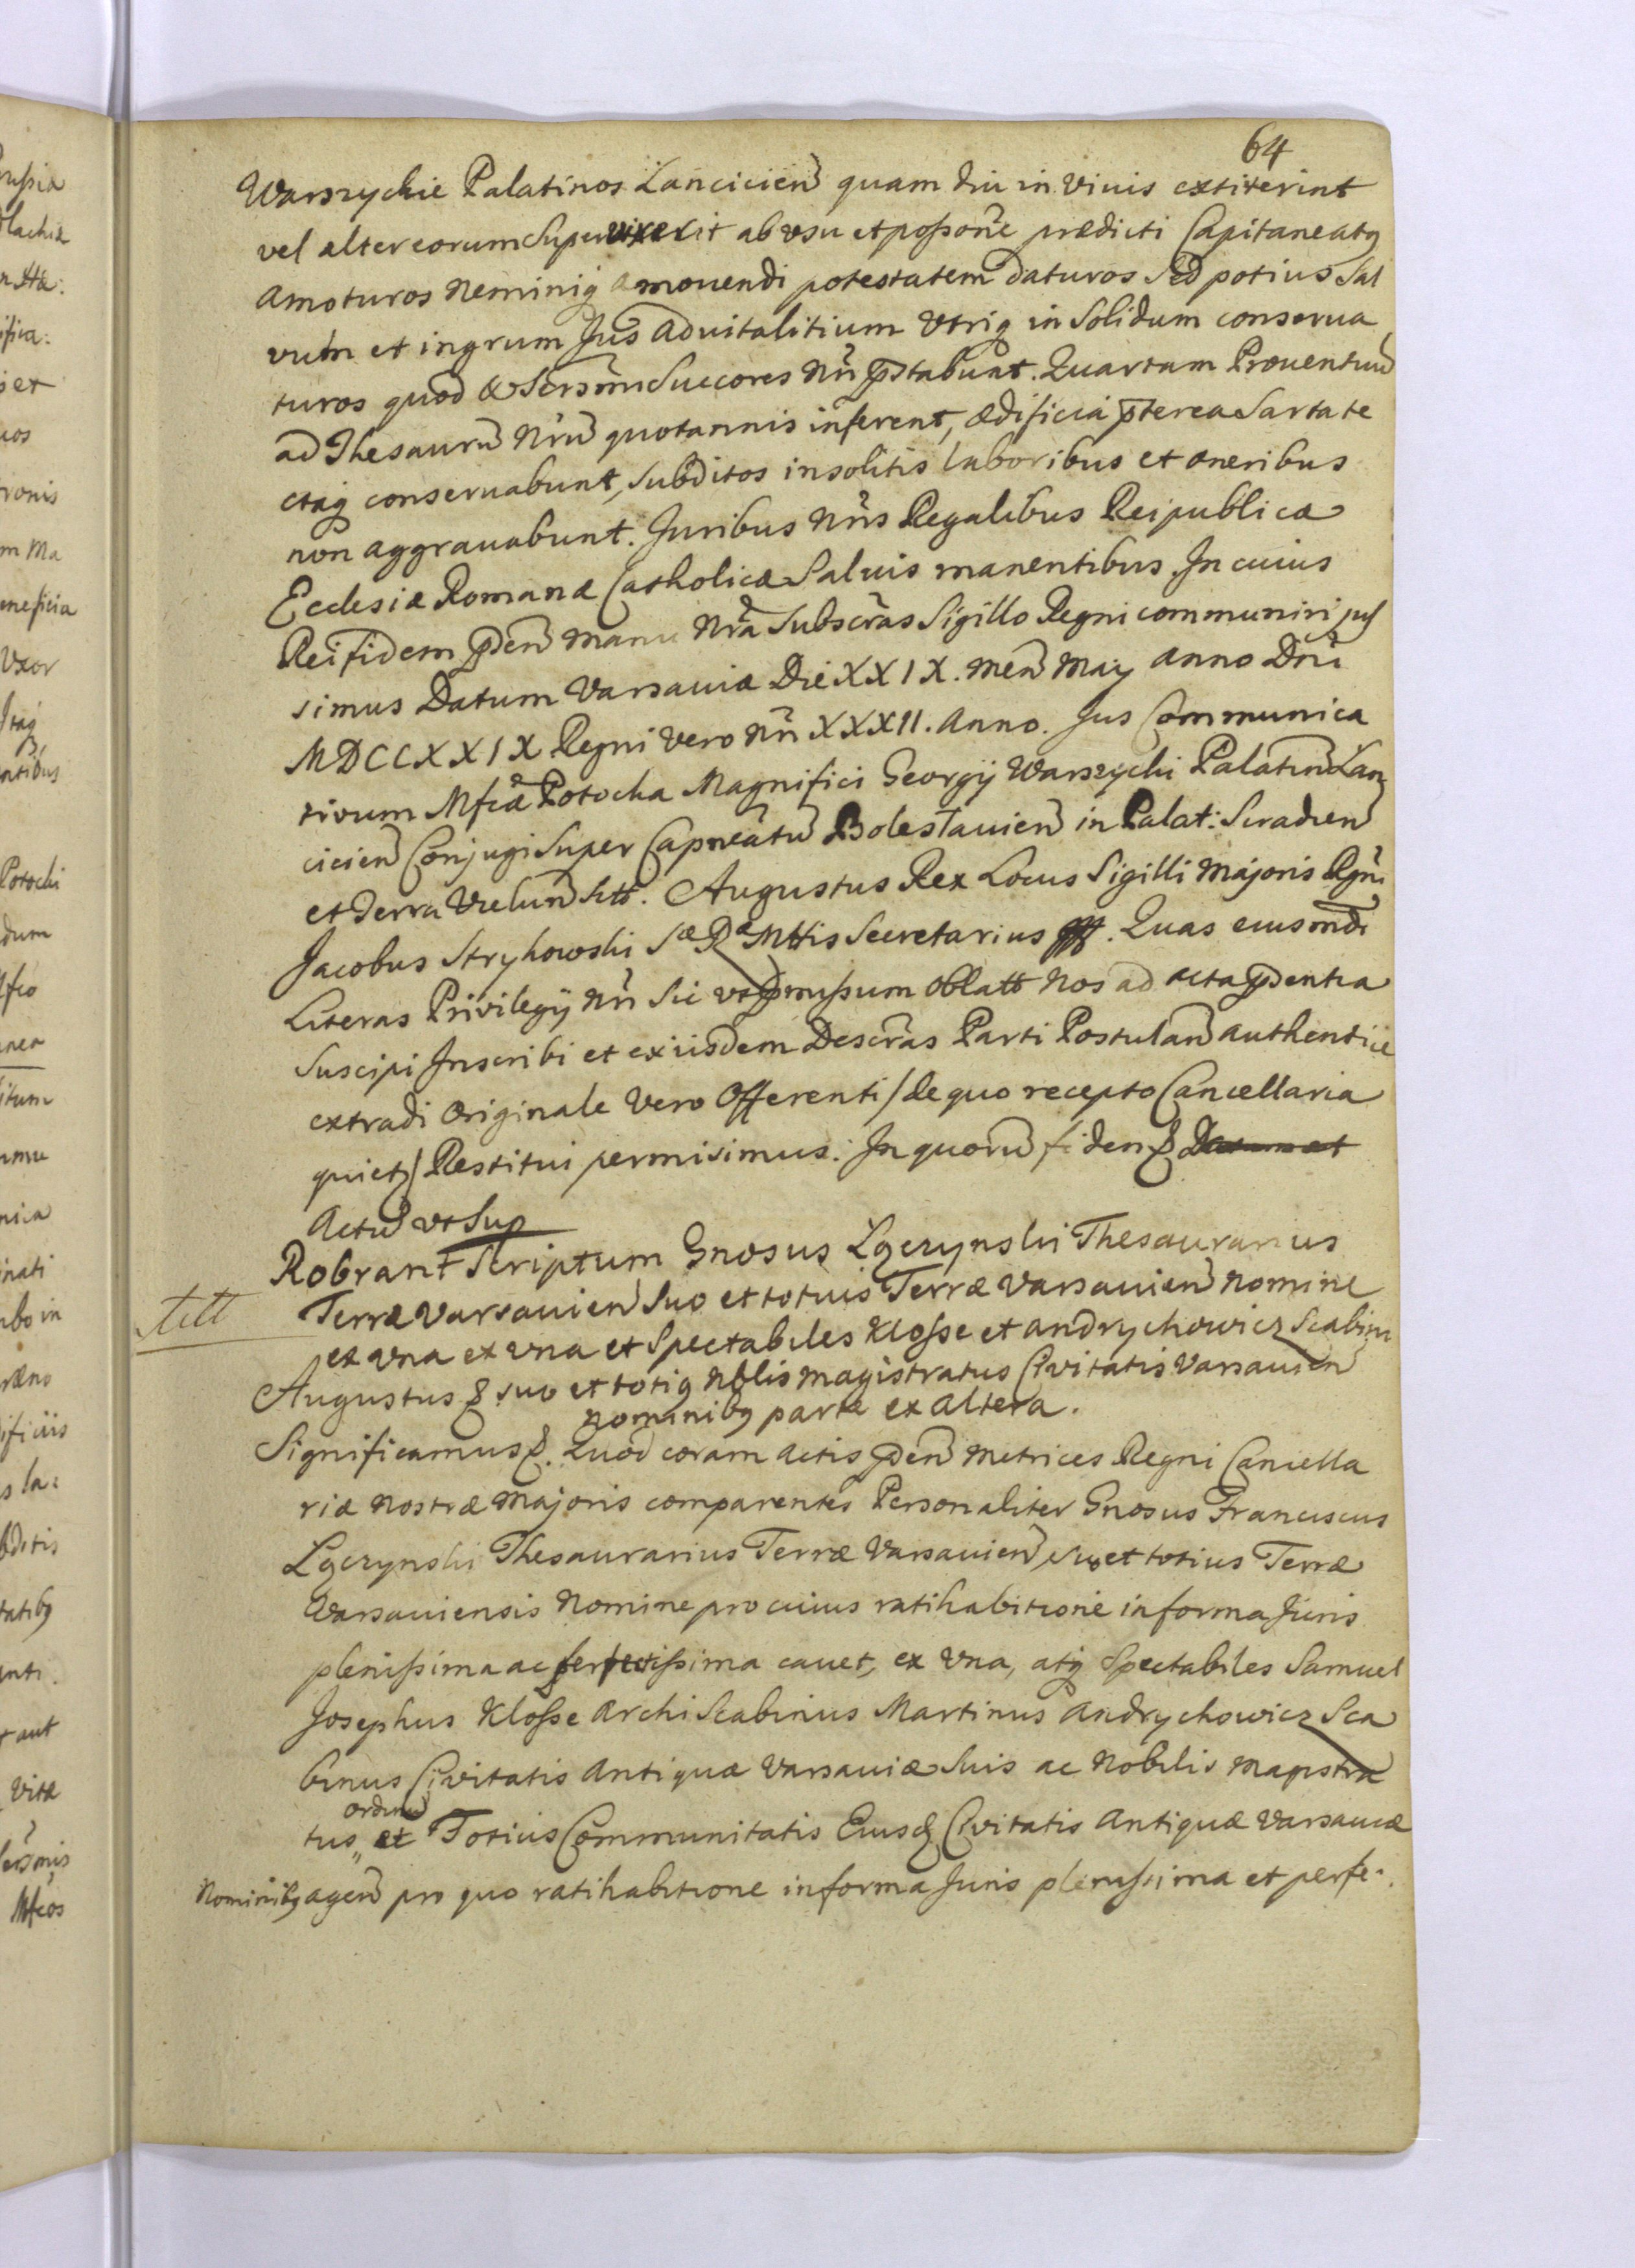 64
Warszyckie Palatinos Lancicien quam diu in vivis extiterint
vel alter eorum Supervixerit ab usu et possone prædicti Capitaneatq
amoturos Neminiq amovendi potestatem daturos Sed potius Sal
vum et ingrum Jus advitalitium Vtriq in Solidum conserva
turos quod & Sersmi Succores Nri pstabunt. Quartam Proventuu
ad Thesauru Nru quotannis inferent, ædificia pterea Sarta te
ctaq conservabunt, Subditos insolitis laboribus et oneribus
non aggravabunt. Juribus Nris Regalibus Reipublicæ
Ecclesiæ Romanæ Catholicæ Salvis manentibus. In cuius
Rei fidem pden manu Nra Subscras Sigillo Regni communiri jus
simus Datum Varsaviæ Die XXIX. Men Maij Anno Dni
MDCCXXIX Regni Vero Nri XXXII. Anno. Jus Communica
tivum Mfcæ Potocka Magnifici Georgij Warszycki Palatin Lan
cicien Conjugi Super Capneatu Boleslavien in Palat: Siradien
et Terra Vielun Sitt. Augustus Rex Locus Sigilli Majoris Rgni
Jacobus Strykowski Sæ Ræ Mttis Secretarius. Quas eiusmdi
Literas Privilegij Nri Sic vt pmissum oblatt Nos ad acta pdentia
Suscipi Inscribi et ex iisdem Descras Parti Postulan authentice
extradi Originale Vero Offerenti / de quo recepto Cancellaria
quiet / Restitui permisimus. In quoru fidem & Datum et
Actu vt Sup
Robrant Scriptum Gnosus Lączynski Thesaurarius
Terræ Varsavien Suo et totius Terræ Varsavien Nomine
ex vna ex vna et Spectabiles Klosse et Andrychowicz Scabini
Augustus &. suo et totiq Nblis Magistratus Civitatis Varsavien
nominibq parte ex altera.
Significamus &. Quod coram actis pden Metrices Regni Cancella
riæ Nostræ Majoris comparentes Personaliter Gnosus Franciscus
Lączynski Thesaurarius Terræ Varsavien suo et totius Terræ
Varsaviensis Nomine pro cuius ratihabitione in forma Juris
plenissima ac perfectissima cavet, ex Vna, atq Spectabiles Samuel
Josephus Klosse Archi Scabinus Martinus Andrychowicz Sca
binus Civitatis Antiquæ Varsaviæ Suis ac Nobilis Magistra
tus ordinu et Totius Communitatis Eiusq Civitatis Antiquæ Varsaviæ
Nominibq agen pro quo ratihabitione in forma Juris plenissima et perfe: